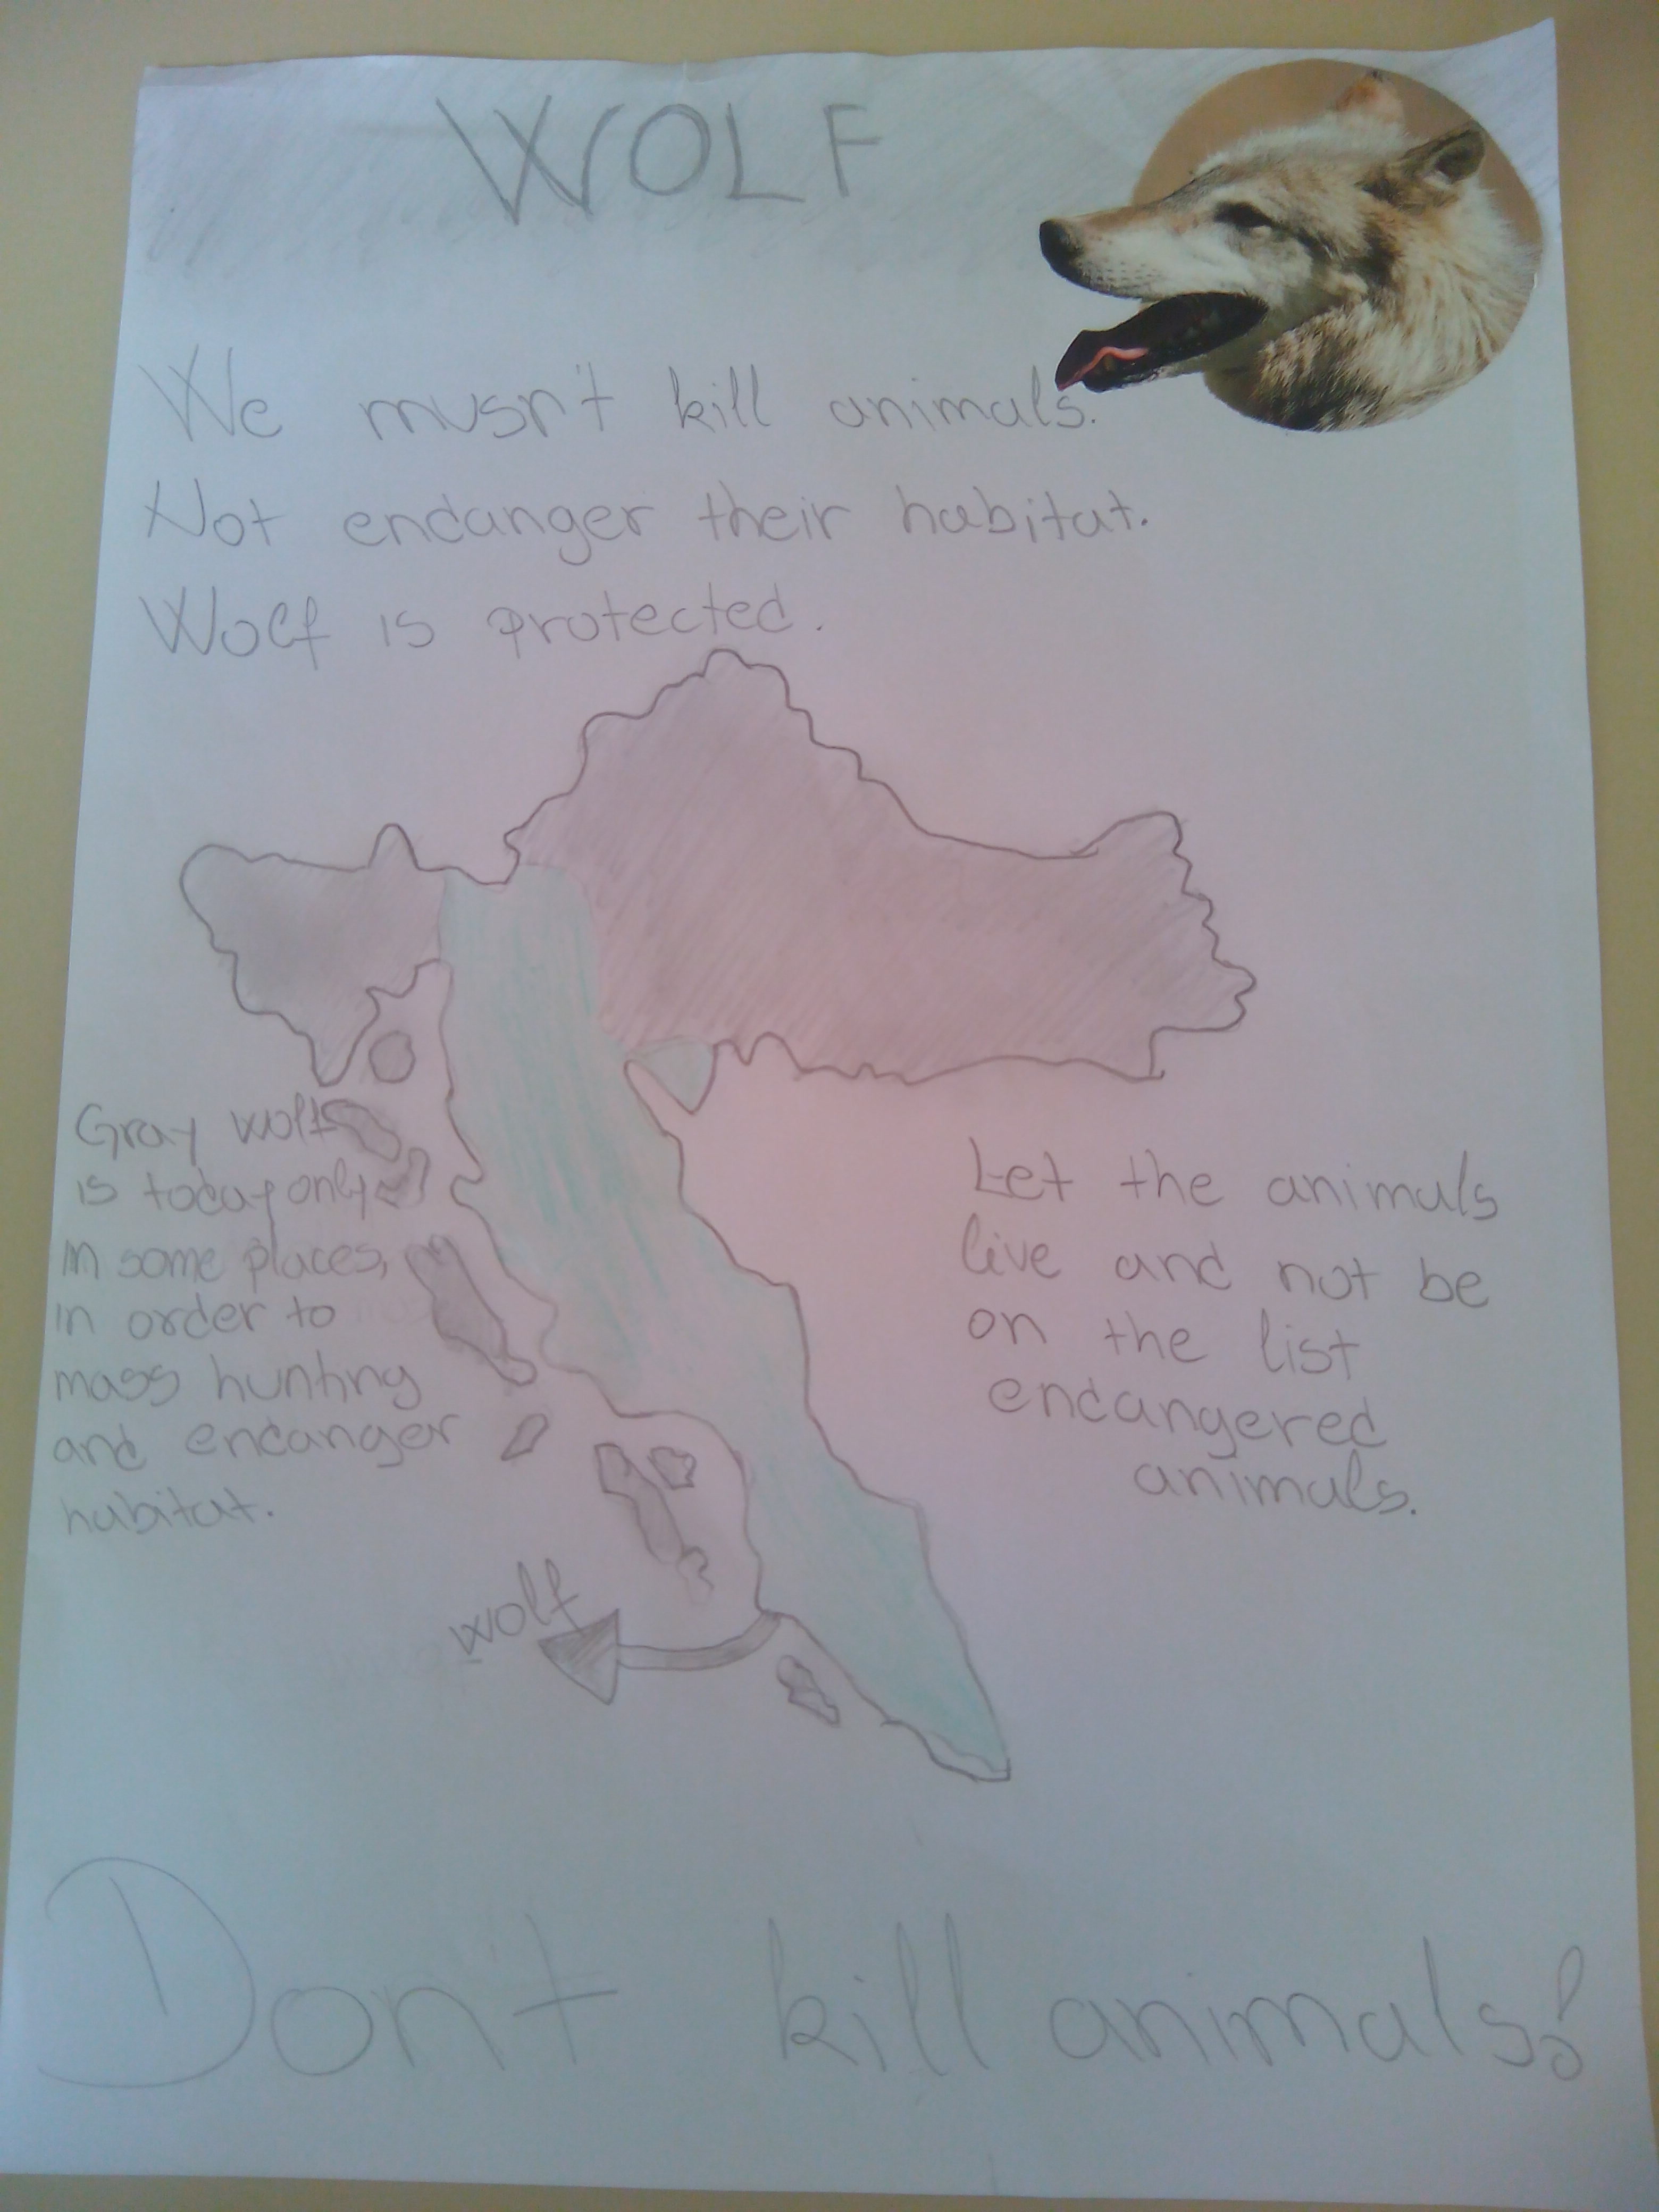 WOLF
We musn't kill animals.
Not endanger their habitat.
Wolf is protected.
Gray wolf
is today only
in some places,
in order to
mass hunting
and endanger
habitat.
Let the animals
live and not be
on the list
endangered
animals.
wolf
Don't kill animals!